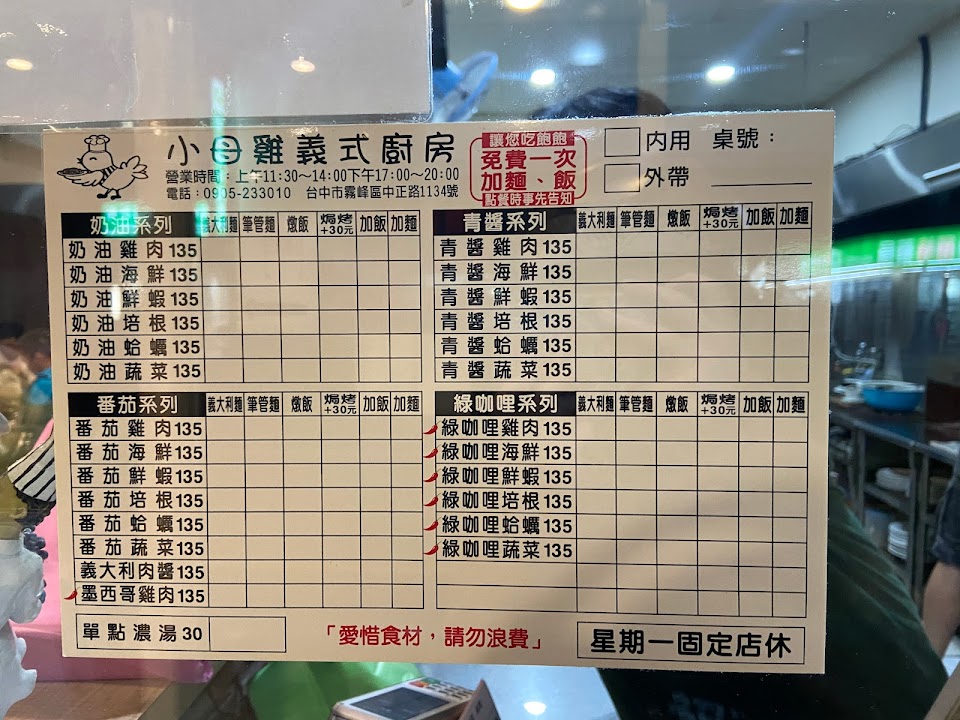 小母雞義式廚房
營業時間：上午11:30～14:00下午17:00～20:00
電話：0905-233010 台中市霧峰區中正路1134號
讓您吃飽飽
免費一次
加麵、飯
點餐時事先告知
内用 桌號：
外帶
奶油系列 義大利麵 筆管麵 燉飯 焗烤+30元 加飯 加麵
奶油雞肉135
奶油海鮮135
奶油鮮蝦135
奶油培根135
奶油蛤蠣135
奶油蔬菜135
青醬系列 義大利麵 筆管麵 燉飯 焗烤+30元 加飯 加麵
青醬雞肉135
青醬海鮮135
青醬鮮蝦135
青醬培根135
青醬蛤蠣135
青醬蔬菜135
番茄系列 義大利麵 筆管麵 燉飯 焗烤+30元 加飯 加麵
番茄雞肉135
番茄海鮮135
番茄鮮蝦135
番茄培根135
番茄蛤蠣135
番茄蔬菜135
義大利肉醬135
墨西哥雞肉135
綠咖哩系列 義大利麵 筆管麵 燉飯 焗烤+30元 加飯 加麵
綠咖哩雞肉135
綠咖哩海鮮135
綠咖哩鮮蝦135
綠咖哩培根135
綠咖哩蛤蠣135
綠咖哩蔬菜135
單點濃湯30
「愛惜食材，請勿浪費」
星期一固定店休